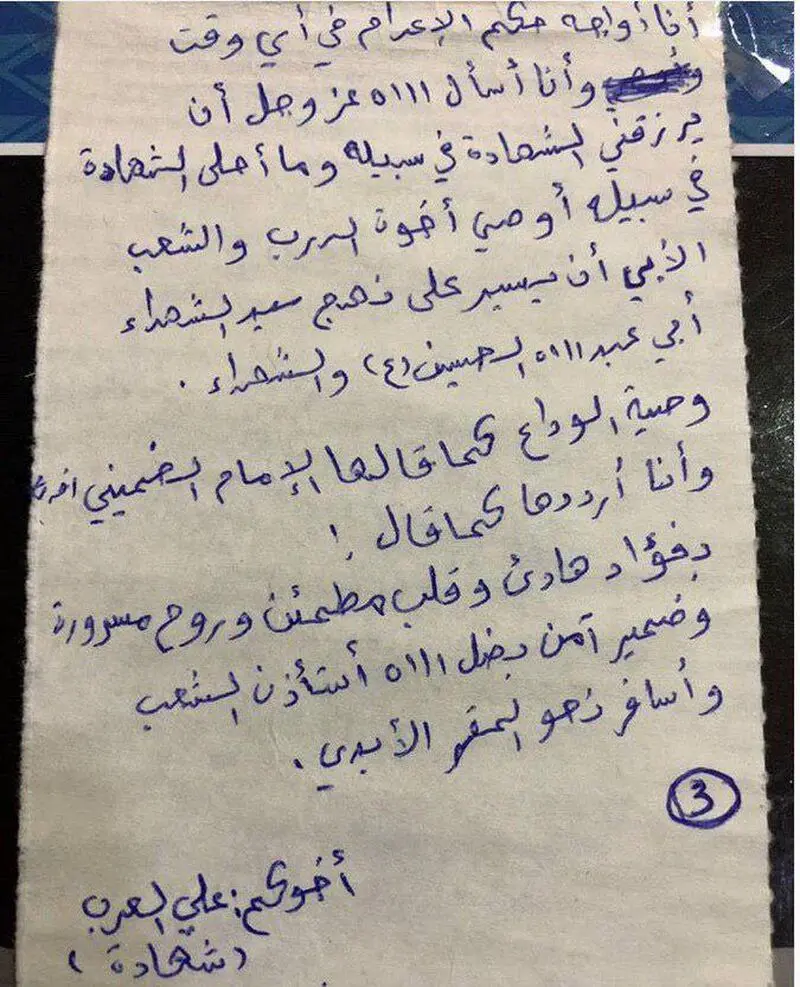 أنا أواجه حكم الإعدام في أي وقت
وأنا أسأل الله عز وجل أن
يرزقني الشهادة في سبيله وما أحلى الشهادة
في سبيله أوصي أخوة الدرب والشعب
الأبي أن يسير على نهج سيد الشهداء
أبي عبدالله الحسين (ع) والشهداء .
وصية الوداع كما قالها الإمام الخميني
وأنا أرددها كما قال :
بفؤاد هادئ وقلب مطمئن وروح مسرورة
وضمير آمن بضل الله أستأذن الشعب
وأسافر نحو المقر الأبدي .
3
أخوكم: علي العرب
(شهادة)